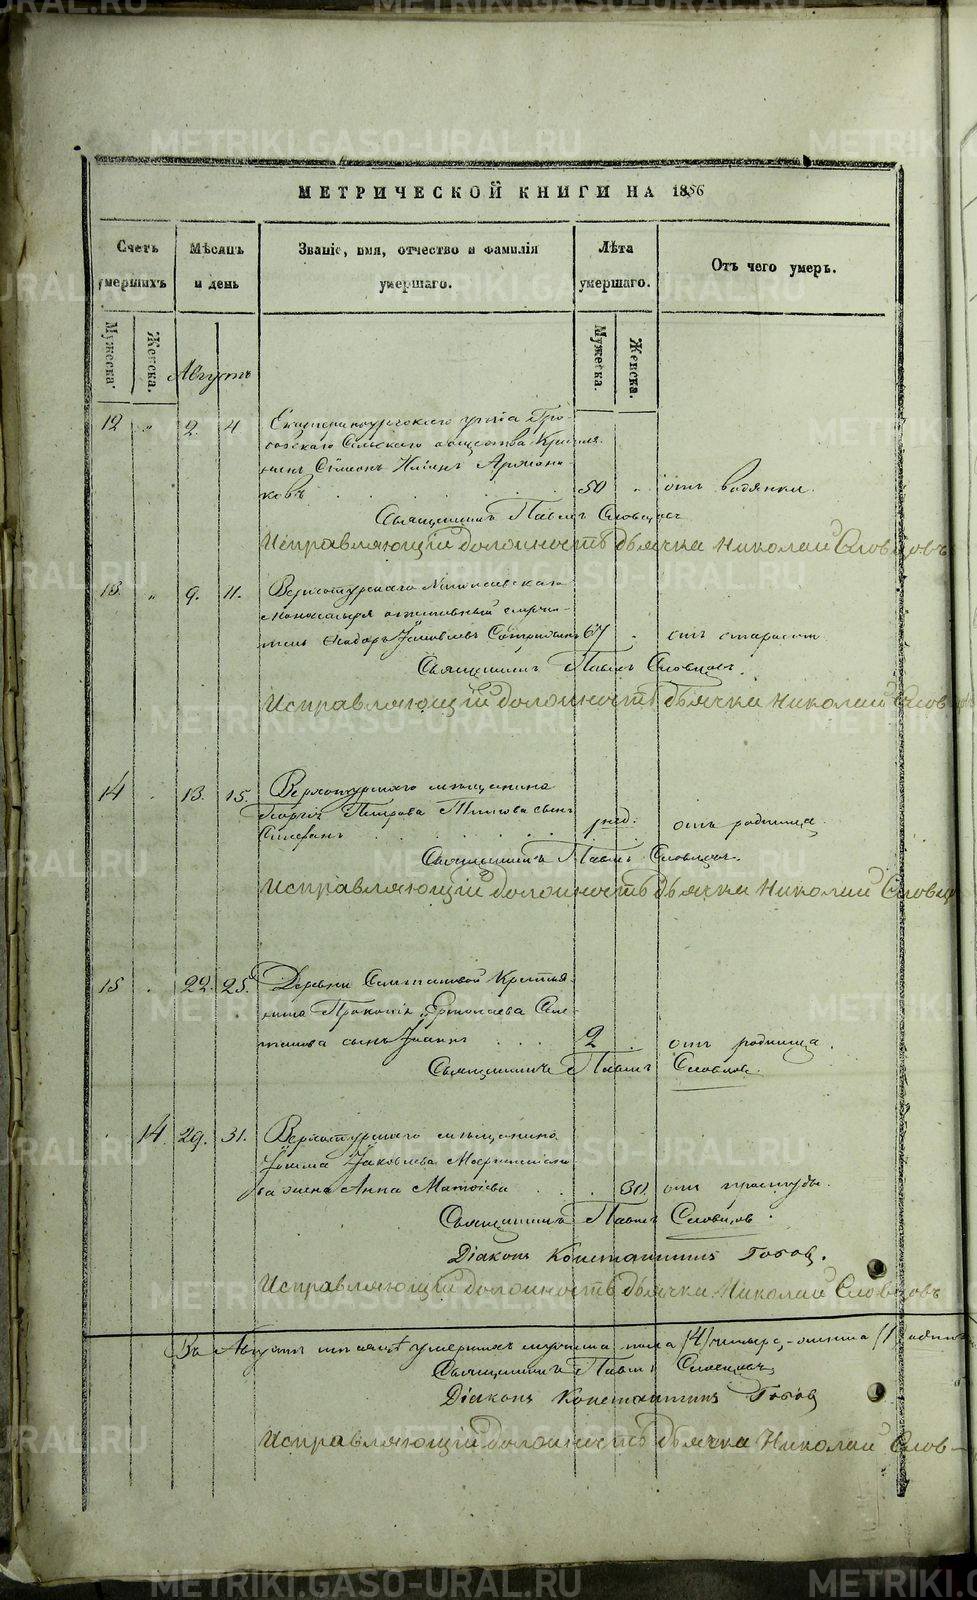 МЕТРИЧЕСКОЙ КНИГИ НА 1856
Счетъ умершихъ
Мѣсяцъ и день
Званіе, имя, отчество и фамилія умершаго.
Лѣта умершаго.
Отъ чего умеръ.
Мужеска.
Женска.
Мужеска.
Женска.
Августъ
12 „ 2. 4 Екатеринбургскаго уѣзда
Сельскаго общества Крестья-
нинъ Симеонъ
ковъ 50 отъ водянки.
Священникъ Павелъ Словцовъ
Исправляющій должность дьячка Николай Словцовъ
13 „ 9. 11. Верхотурскаго Николаевскаго
монастыря
Ѳеодоръ Іаковлевъ 67 отъ старости
Священникъ Павелъ Словцовъ.
Исправляющій должность дьячка Николай Слов
14 13. 15. Верхотурскаго мѣщанина
Георгія Петрова Титова сынъ
Стефанъ отъ родимца.
Священникъ Павелъ Словцовъ.
Исправляющій должность дьячка Николай Словц
15 22. 25. Деревни Салтановой Крестья-
нина Прокопія Ермолаева Сал-
танова сынъ Іоаннъ 2 отъ родимца.
Священникъ Павелъ Словцовъ.
14 29. 31. Верхотурскаго мѣщанина
Іаковлева
ва жена Анна Матѳіева 30 отъ простуды.
Священникъ Павелъ Словцовъ.
Діаконъ Константинъ Топоровъ.
Исправляющій должность дьячка Николай Словцовъ
Въ Августѣ мѣсяцѣ умершихъ мужеска пола (4) четыре, женска (1) одна
Священникъ Павелъ Словцовъ
Діаконъ Константинъ
Исправляющій должность дьячка Николай Слов-
METRIKI.GASO-URAL.RU